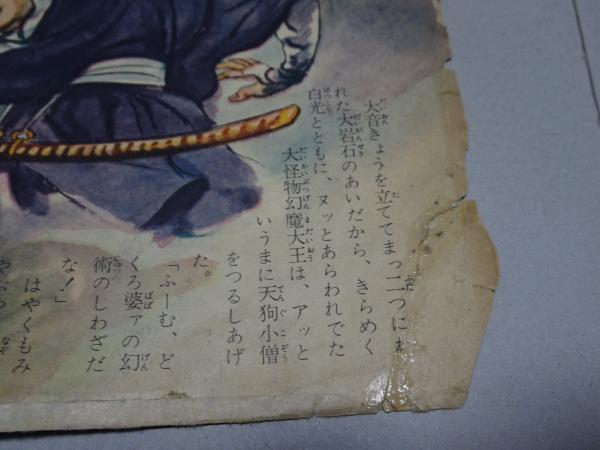 大音きょうを立ててまっ二つにわ
れた大岩石のあいだから、きらめく
白光とともに、ヌッとあらわれでた
大怪物幻魔大王は、アッと
いうまに天狗小僧
をつるしあげ
た。
「ふーむ、ど
くろ婆ァの幻
術のしわざだ
な！」
はやくもみ